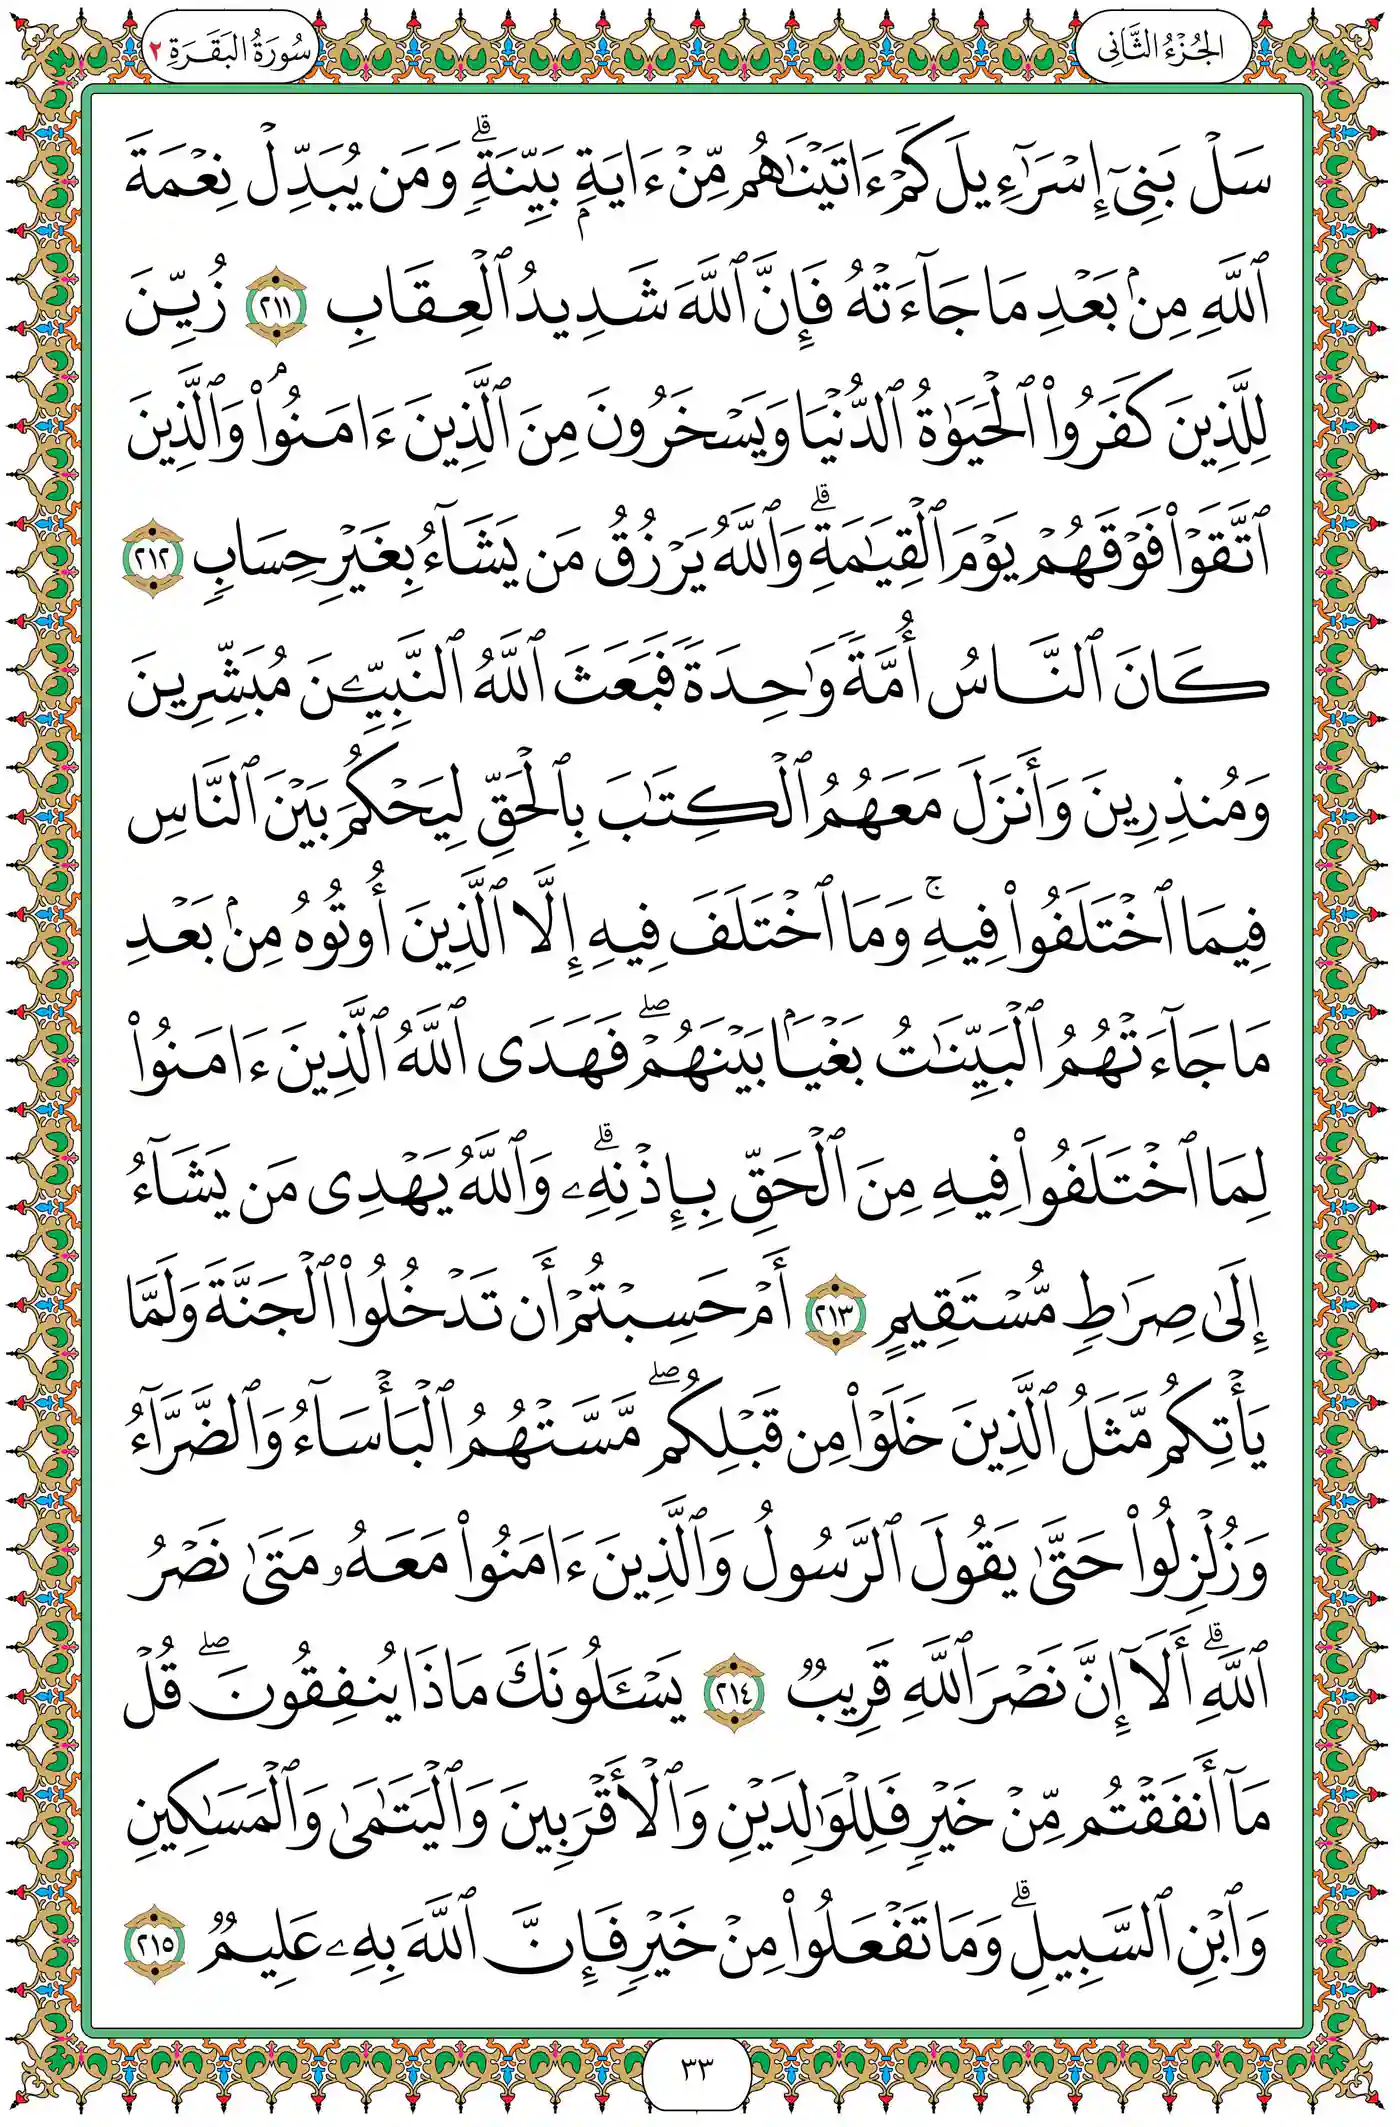 الجُزْءُ الثَّانِى
سُورَةُ البَقَرَةِ ٢
سَلْ بَنِىٓ إِسْرَٰٓءِيلَ كَمْ ءَاتَيْنَٰهُم مِّنْ ءَايَةٍۭ بَيِّنَةٍۗ وَمَن يُبَدِّلْ نِعْمَةَ
ٱللَّهِ مِنۢ بَعْدِ مَا جَآءَتْهُ فَإِنَّ ٱللَّهَ شَدِيدُ ٱلْعِقَابِ ٢١١ زُيِّنَ
لِلَّذِينَ كَفَرُوا۟ ٱلْحَيَوٰةُ ٱلدُّنْيَا وَيَسْخَرُونَ مِنَ ٱلَّذِينَ ءَامَنُوا۟ۘ وَٱلَّذِينَ
ٱتَّقَوْا۟ فَوْقَهُمْ يَوْمَ ٱلْقِيَٰمَةِۗ وَٱللَّهُ يَرْزُقُ مَن يَشَآءُ بِغَيْرِ حِسَابٍ ٢١٢
كَانَ ٱلنَّاسُ أُمَّةً وَٰحِدَةً فَبَعَثَ ٱللَّهُ ٱلنَّبِيِّۦنَ مُبَشِّرِينَ
وَمُنذِرِينَ وَأَنزَلَ مَعَهُمُ ٱلْكِتَٰبَ بِٱلْحَقِّ لِيَحْكُمَ بَيْنَ ٱلنَّاسِ
فِيمَا ٱخْتَلَفُوا۟ فِيهِۚ وَمَا ٱخْتَلَفَ فِيهِ إِلَّا ٱلَّذِينَ أُوتُوهُ مِنۢ بَعْدِ
مَا جَآءَتْهُمُ ٱلْبَيِّنَٰتُ بَغْيًۢا بَيْنَهُمْۖ فَهَدَى ٱللَّهُ ٱلَّذِينَ ءَامَنُوا۟
لِمَا ٱخْتَلَفُوا۟ فِيهِ مِنَ ٱلْحَقِّ بِإِذْنِهِۦۗ وَٱللَّهُ يَهْدِى مَن يَشَآءُ
إِلَىٰ صِرَٰطٍ مُّسْتَقِيمٍ ٢١٣ أَمْ حَسِبْتُمْ أَن تَدْخُلُوا۟ ٱلْجَنَّةَ وَلَمَّا
يَأْتِكُم مَّثَلُ ٱلَّذِينَ خَلَوْا۟ مِن قَبْلِكُمۖ مَّسَّتْهُمُ ٱلْبَأْسَآءُ وَٱلضَّرَّآءُ
وَزُلْزِلُوا۟ حَتَّىٰ يَقُولَ ٱلرَّسُولُ وَٱلَّذِينَ ءَامَنُوا۟ مَعَهُۥ مَتَىٰ نَصْرُ
ٱللَّهِۗ أَلَآ إِنَّ نَصْرَ ٱللَّهِ قَرِيبٌ ٢١٤ يَسْـَٔلُونَكَ مَاذَا يُنفِقُونَۖ قُلْ
مَآ أَنفَقْتُم مِّنْ خَيْرٍ فَلِلْوَٰلِدَيْنِ وَٱلْأَقْرَبِينَ وَٱلْيَتَٰمَىٰ وَٱلْمَسَٰكِينِ
وَٱبْنِ ٱلسَّبِيلِۗ وَمَا تَفْعَلُوا۟ مِنْ خَيْرٍ فَإِنَّ ٱللَّهَ بِهِۦ عَلِيمٌ ٢١٥
٣٣